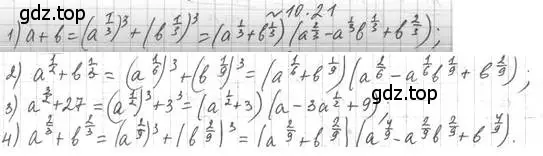 №10.21
1) a+b=(a^{1/3})^3+(b^{1/3})^3=(a^{1/3}+b^{1/3})(a^{2/3}-a^{1/3}b^{1/3}+b^{2/3});
2) a^{1/2}+b^{1/3}=(a^{1/6})^3+(b^{1/9})^3=(a^{1/6}+b^{1/9})(a^{2/6}-a^{1/6}b^{1/9}+b^{2/9});
3) a^{3/2}+27=(a^{1/2})^3+3^3=(a^{1/2}+3)(a-3a^{1/2}+9)
4) a^{2/3}+b^{2/3}=(a^{2/9})^3+(b^{2/9})^3=(a^{2/9}+b^{2/9})(a^{4/9}-a^{2/9}b^{2/9}+b^{4/9}).